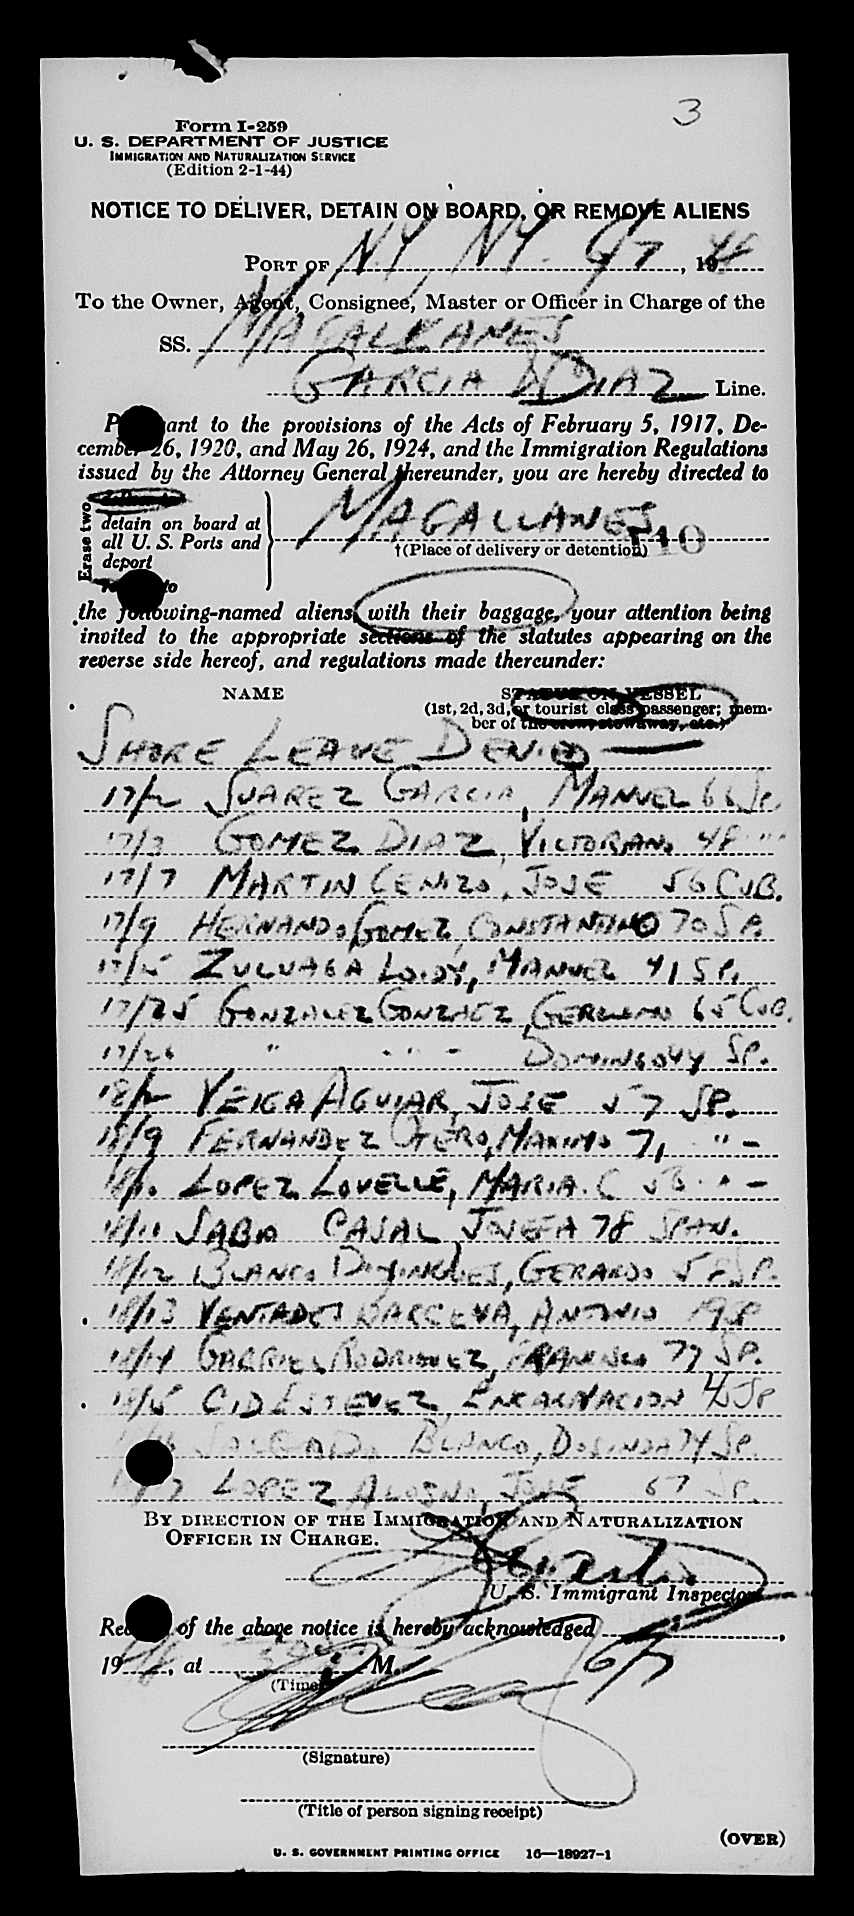 3
Form I-259
U. S. DEPARTMENT OF JUSTICE
IMMIGRATION AND NATURALIZATION SERVICE
(Edition 2-1-44)
NOTICE TO DELIVER, DETAIN ON BOARD, OR REMOVE ALIENS
PORT OF N.Y. N.Y. 6/7, 1948
To the Owner, Agent, Consignee, Master or Officer in Charge of the
SS. MAGALLANES
GARCIA DIAZ Line.
Pursuant to the provisions of the Acts of February 5, 1917, De-
cember 26, 1920, and May 26, 1924, and the Immigration Regulations
issued by the Attorney General thereunder, you are hereby directed to
Erase two
detain on board at
all U. S. Ports and
deport
MAGALLANES
510
†(Place of delivery or detention)
the following-named aliens, with their baggage, your attention being
invited to the appropriate sections of the statutes appearing on the
reverse side hereof, and regulations made thereunder:
NAME
STATUS ON VESSEL
(1st, 2d, 3d, or tourist class passenger; mem-
ber of the crew, stowaway, etc.)
SHORE LEAVE DENIED
17/2 SUAREZ GARCIA, MANUEL 66 Sp.
17/3 GOMEZ DIAZ, VICTORIANO 48 " "
17/7 MARTIN CENIZO, JOSE 56 CUB.
17/9 HERNANDO GOMEZ, CONSTANTINO 70 SP.
17/15 ZULUAGA LOIDY, MANUEL 41 SP.
17/25 GONZALEZ GONZALEZ, 65 CUB.
17/26 " " DOMINGO 44 SP.
18/2 VEIGA AGUIAR, JOSE 57 SP.
18/9 FERNANDEZ OTERO, MAXIMO 71 " -
18/10 LOPEZ LOVELLE, MARIA. C " -
18/11 SABIO CASAL, JOSEFA 78 SPAN.
18/12 BLANCO DOMINGUEZ, GERARDO 58 SP.
18/13 VENTADES BARCENA, ANTONIO 19 SP
18/14 GABRIEL RODRIGUEZ, FRANCISCO 77 SP.
18/15 CID ESTEVEZ, ENCARNACION 45 SP
SALGADO BLANCO, DOSINDA 74 SP.
LOPEZ JOSE 67 SP.
BY DIRECTION OF THE IMMIGRATION AND NATURALIZATION
OFFICER IN CHARGE.
U. S. Immigrant Inspector.
Receipt of the above notice is hereby acknowledged 6/7,
1948, at M.
(Time)
(Signature)
(Title of person signing receipt)
(OVER)
U. S. GOVERNMENT PRINTING OFFICE 16—18927-1